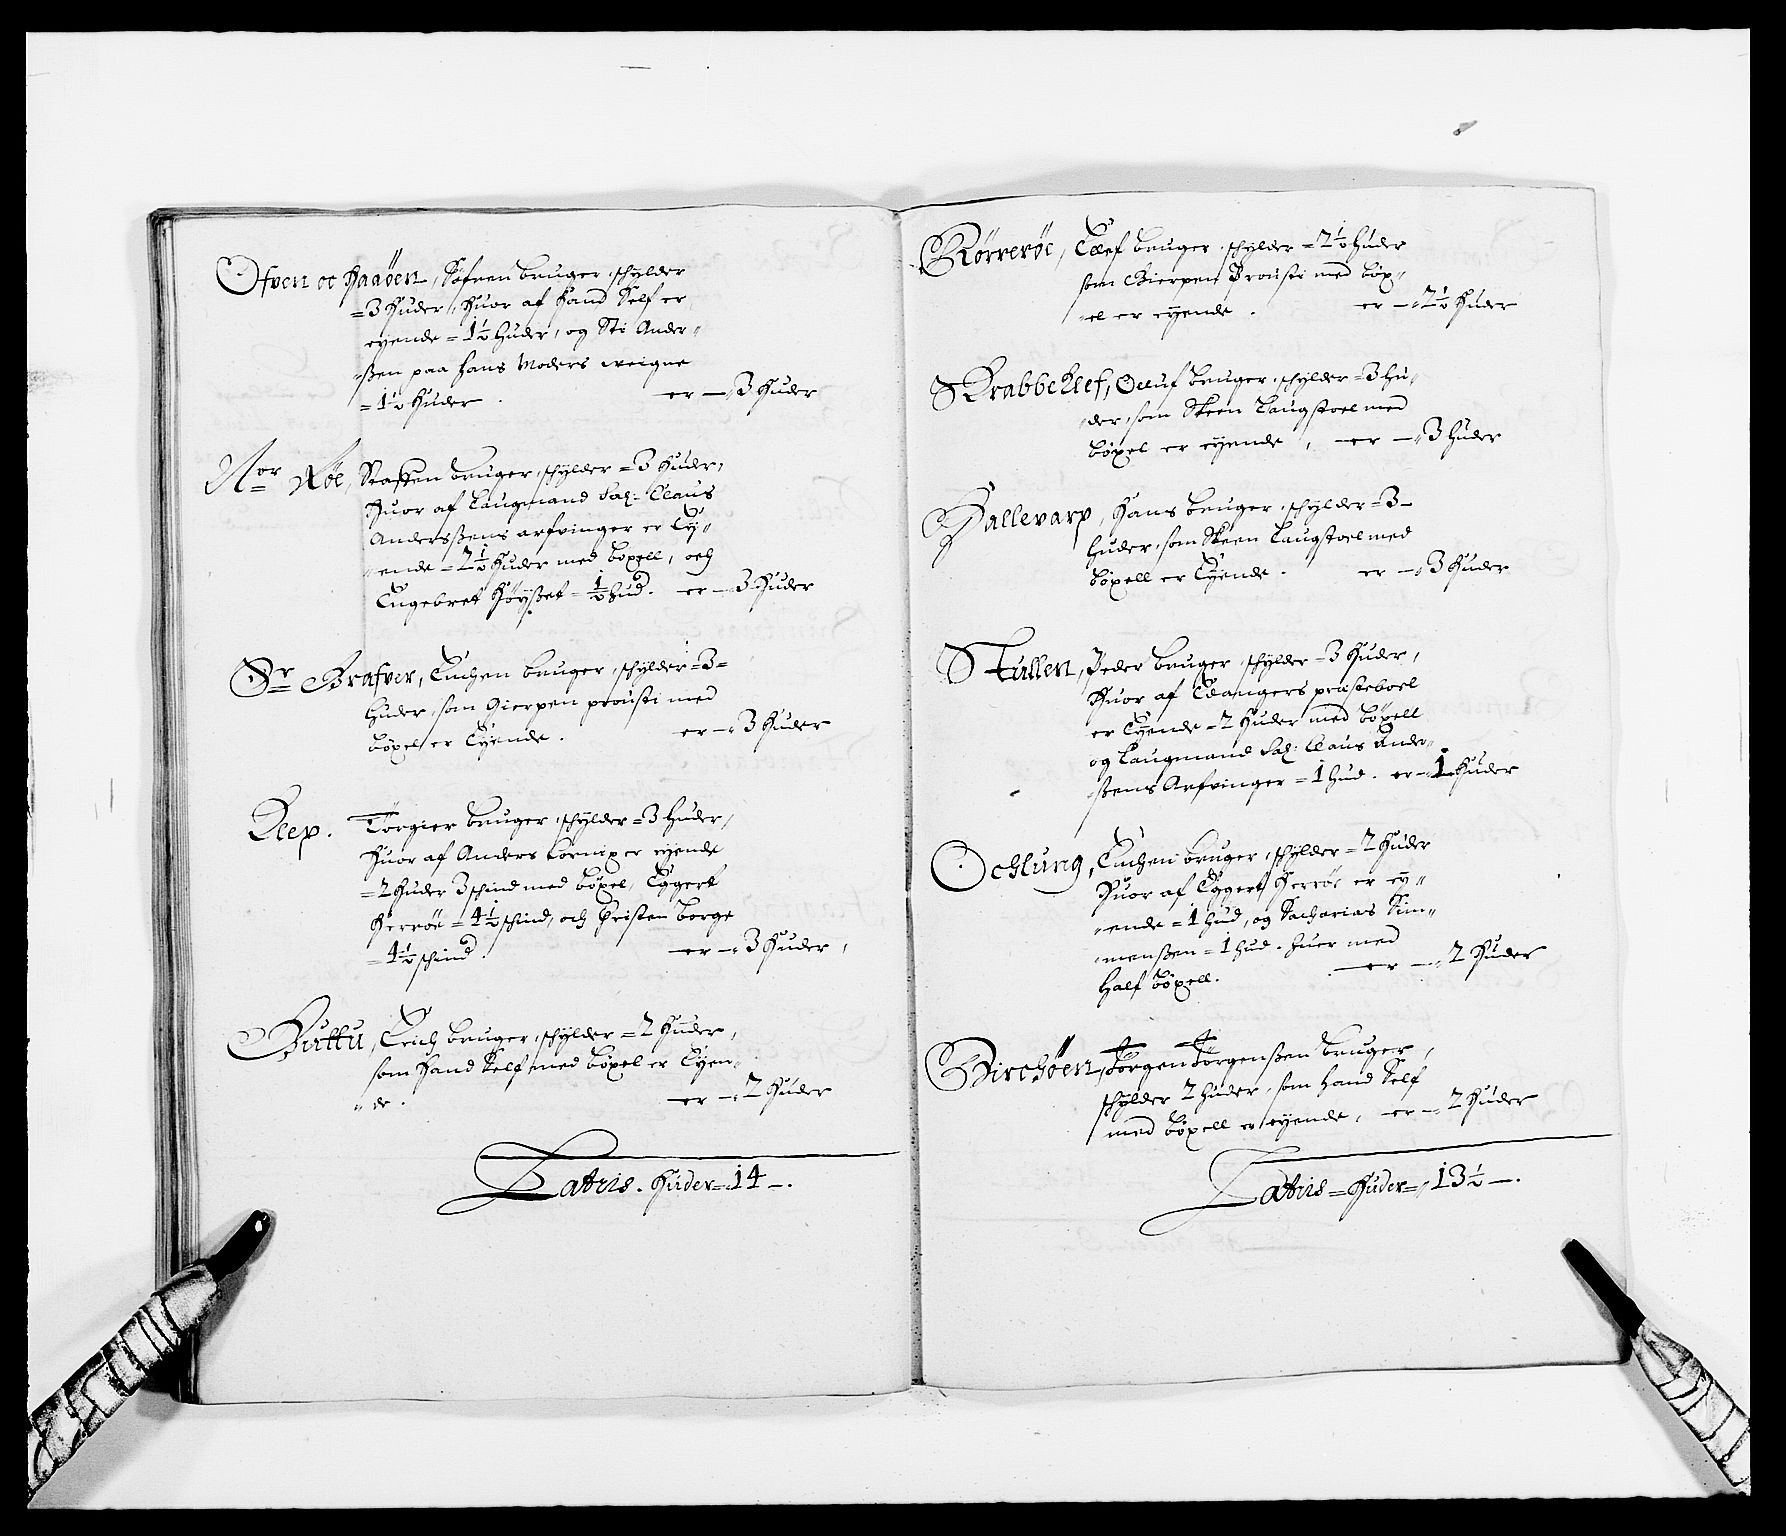 Ofven oc Haaöen, Söfren bruger, schylder
=3 Huder, Huor af Hand Self er
eyende =1½ Huder, og Sti Ander„
„ßen paa Hans Moders weigne
=1½ Huder. er —„3 Huder
Nor Röe, Staffen bruger, schylder =3 Huder,
Huor af Laugmand Sal: Claus
Andersßens arfvinger er Ey„
„ende =2½ Huder med boxell, och
Engebret Höyßet =½ hud. er —„3 Huder
Sr Grafver, Auchen bruger, schylder =3=
Huder, som Gierpen prousti med
böxel er Eyende. er —„3 Huder
Klep. Törgier bruger, schylder =3 Huder,
Huor af Anders er eyende
=2 Huder 3 schind med böxel, Eggert
Herröe =4½ schind, och Christen Borge
=4½ schind. er —„3 Huder,
Guttu, Erich bruger, schylder =2 Huder,
som Hand Self med böxel er Eyen„
„de. er —„2 Huder
Latris. Huder=„14 —.
Rörreröe, Elef bruger, schylder =2½ Huder
som Gierpen Prousti med böx„
„el er eyende. er —„2½ Huder
Krabbeklef, Oeluf bruger, schylder =3 hu„
„der, som Skeen Laugstoel med
böxel er eyende, er —„3 Huder
Hallevarp, Hans bruger, schylder =3—
Huder, som Skeen Laugstoel med
böxell er Eyende. er —„3 Huder
Stullen, Peder bruger, schylder =3 Huder,
Huor af Edangers præsteboel
er Eyende =2 Huder med böxell
og Laugmand Sal: Claus Ander„
„ßens Arfvinger =1 hud. er —„1 Huder
Ocklung, Auchen bruger, schylder =2 Huder
Huor af Eggert Herröe er ey„
„ende =1 hud, og Sacharias Sim„
„menßen =1 hud. huer med
Half böxell. er —„2 Huder
Birchöen, Jörgen Jörgenßen bruger,
schylder 2 Huder, som Hand Self
med böxell er eyende, er —„2 Huder
Latris =Huder=„13½ —.